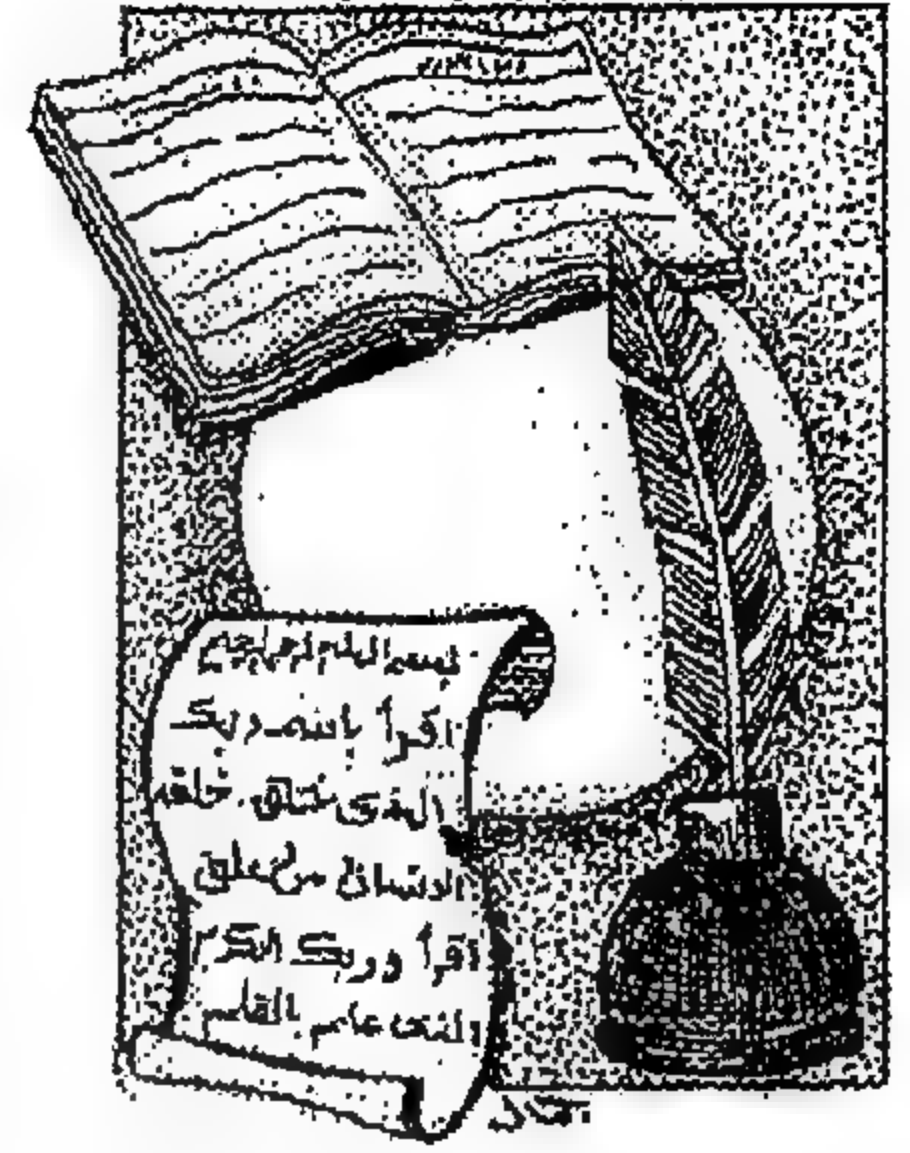 بسم الله الرحمن الرحيم
اقرأ باسم ربك
الذى خلق . خلق
الانسان من علق
اقرأ وربك الاكرم
الذى علم بالقلم